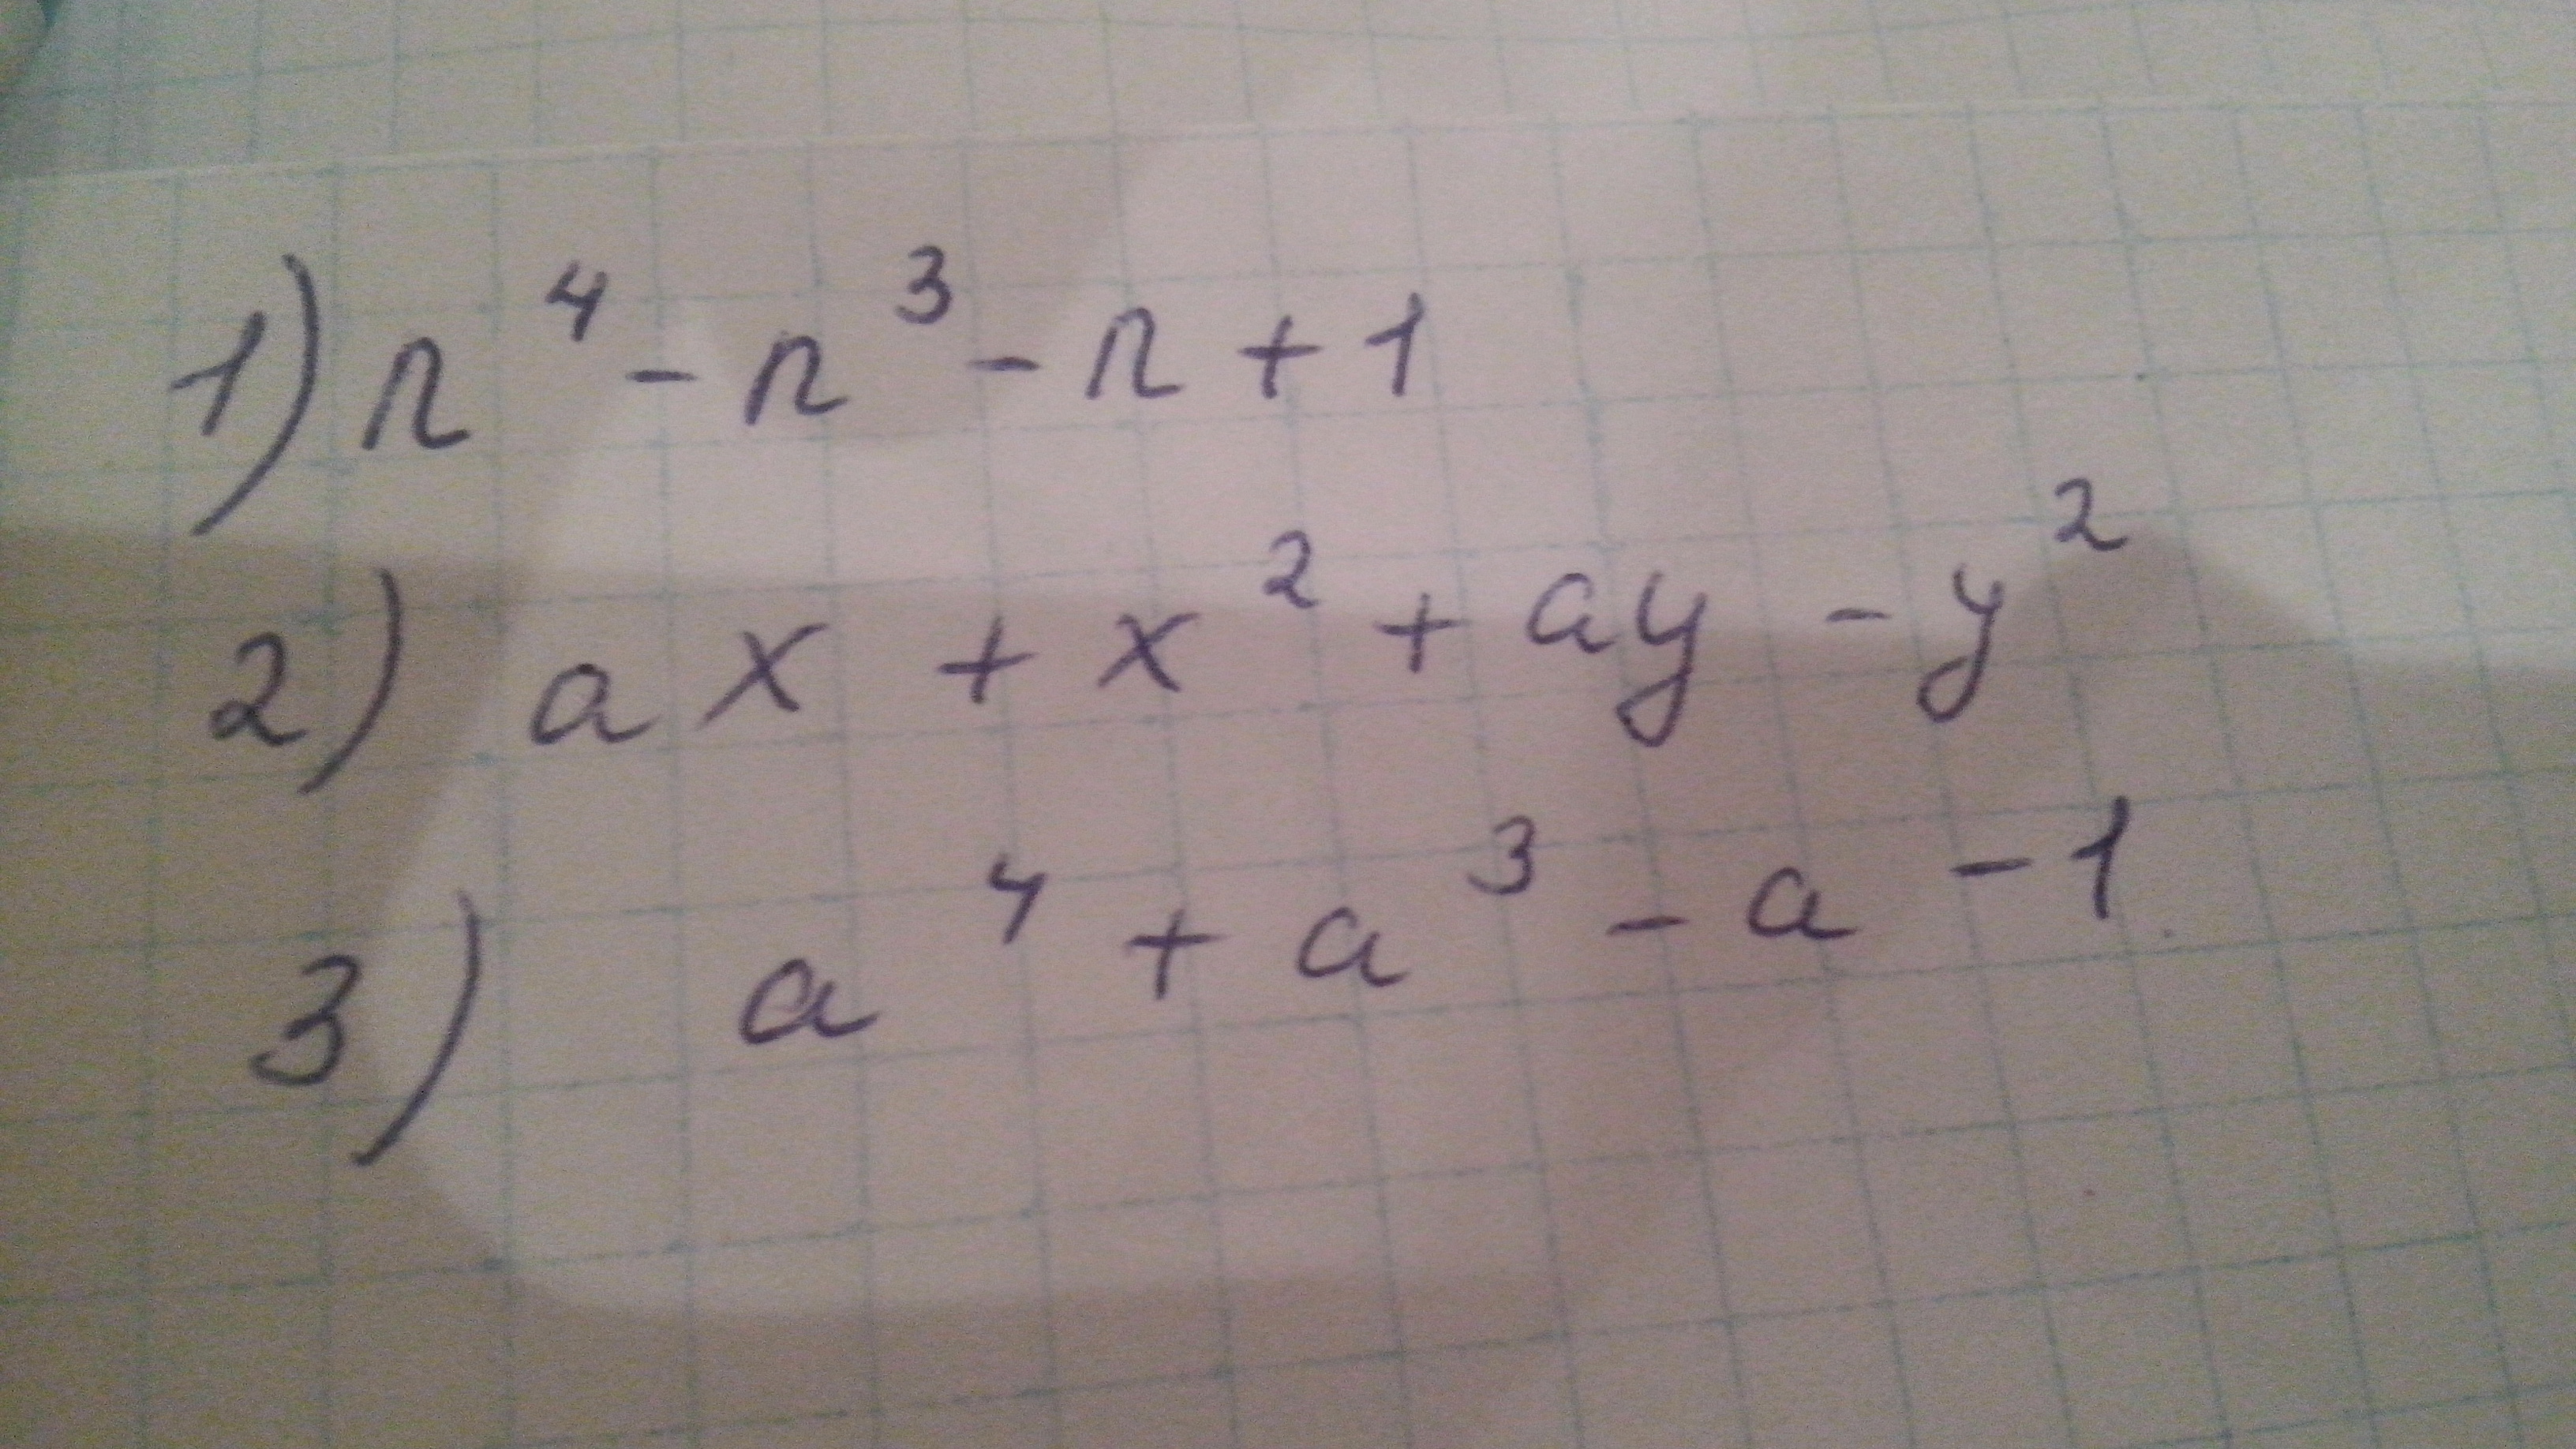 1) n⁴ - n³ - n + 1
2) ax + x² + ay - y²
3) a⁴ + a³ - a - 1